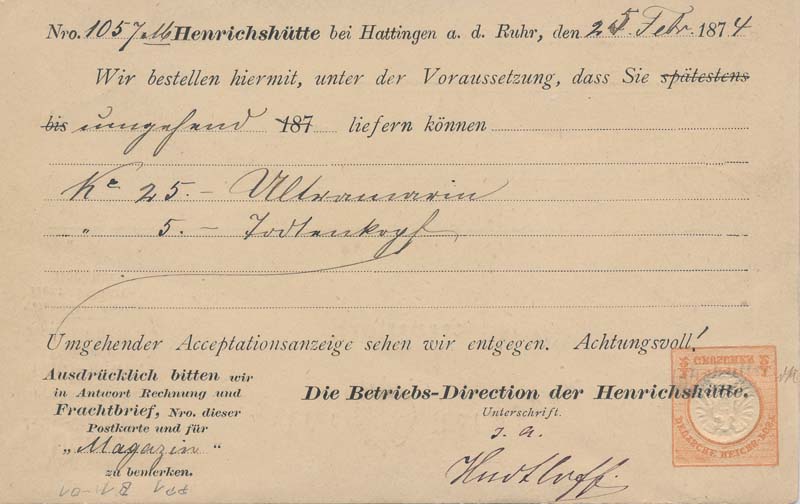 Nro. 1057 M Henrichshütte bei Hattingen a. d. Ruhr, den 25. Febr. 1874
Wir bestellen hiermit, unter der Voraussetzung, dass Sie spätestens
bis umgehend 187 liefern können
Ko 25.- Ultramarin
" 5.- Todtenkopf
Umgehender Acceptationsanzeige sehen wir entgegen. Achtungsvoll!
Ausdrücklich bitten wir
in Antwort Rechnung und
Frachtbrief, Nro. dieser
Postkarte und für
„Magazin“
zu bemerken.
Die Betriebs-Direction der Henrichshütte.
Unterschrift.
I. A.
DEUTSCHE REICHS-POST